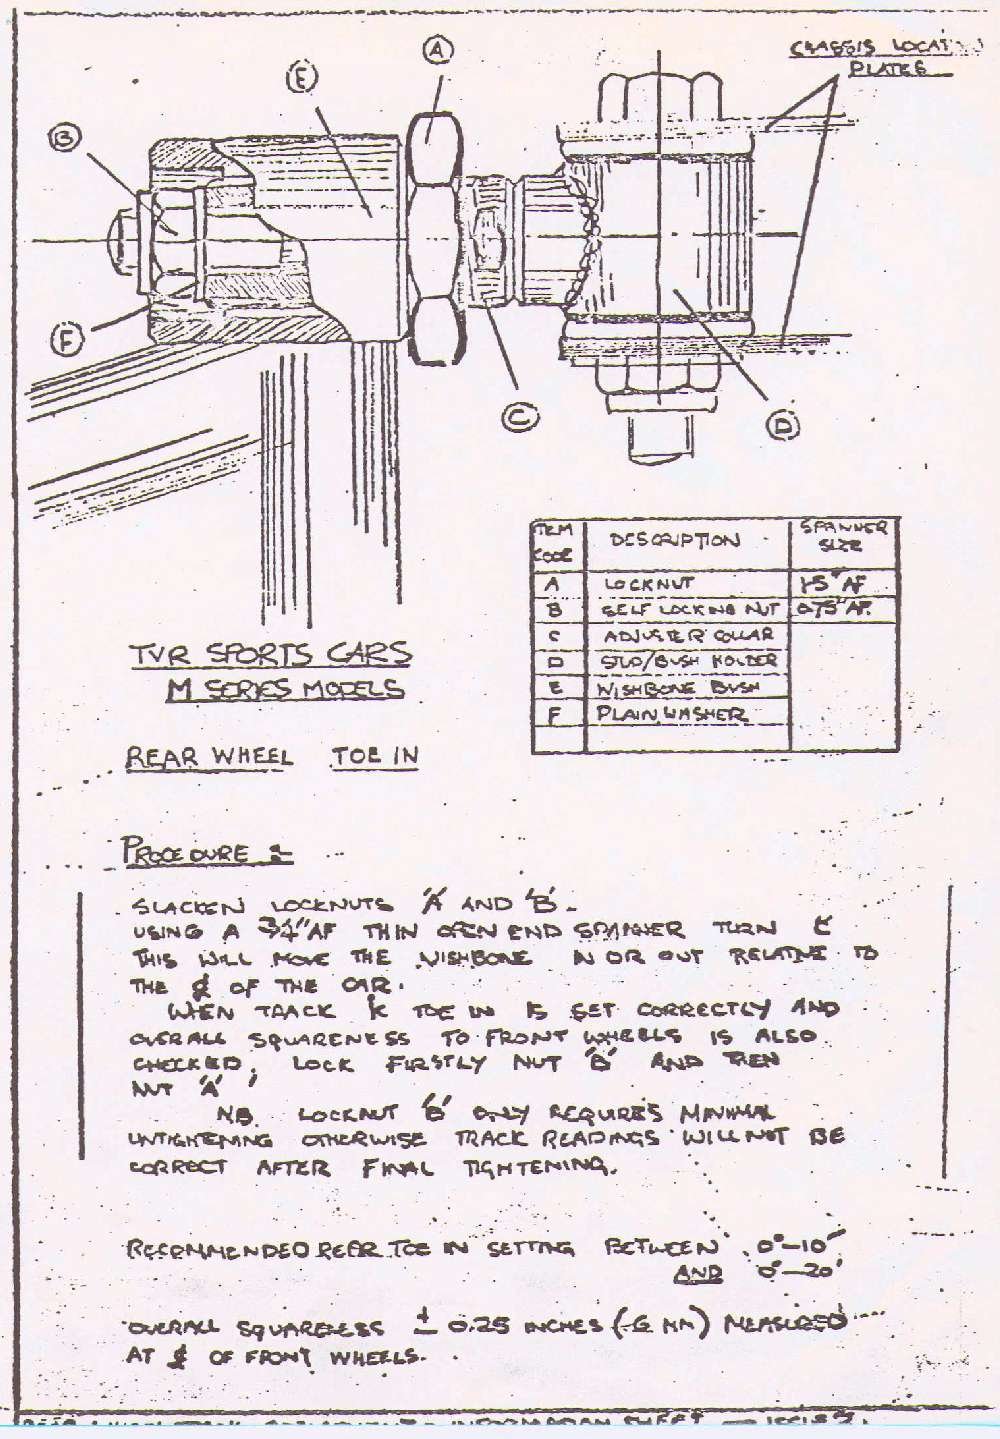 CHASSIS LOCATION
PLATES
A
E
B
F
C
D
ITEM CODE DESCRIPTION SPANNER SIZE
A LOCKNUT 1·5" AF
B SELF LOCKING NUT 0.75" AF.
C ADJUSTER COLLAR
D STUD/BUSH HOLDER
E WISHBONE BUSH
F PLAIN WASHER
TVR SPORTS CARS
M SERIES MODELS
REAR WHEEL TOE IN
PROCEDURE :-
SLACKEN LOCKNUTS 'A' AND 'B'.
USING A 3/4" AF THIN OPEN END SPANNER TURN C
THIS WILL MOVE THE WISHBONE IN OR OUT RELATIVE TO
THE ℄ OF THE CAR.
WHEN TRACK TOE IN IS SET CORRECTLY AND
OVERALL SQUARENESS TO FRONT WHEELS IS ALSO
CHECKED, LOCK FIRSTLY NUT 'B' AND THEN
NUT 'A'
NB. LOCKNUT 'B' ONLY REQUIRES MINIMAL
UNTIGHTENING OTHERWISE TRACK READINGS WILL NOT BE
CORRECT AFTER FINAL TIGHTENING.
RECOMMENDED REER TOE IN SETTING BETWEEN 0°-10'
AND 0°-20'
OVERALL SQUARELESS ± 0.25 INCHES (-6 MM) MEASURED
AT ℄ OF FRONT WHEELS.
REAR WHEEL TRACK INFORMATION SHEET - ISSUE 2.